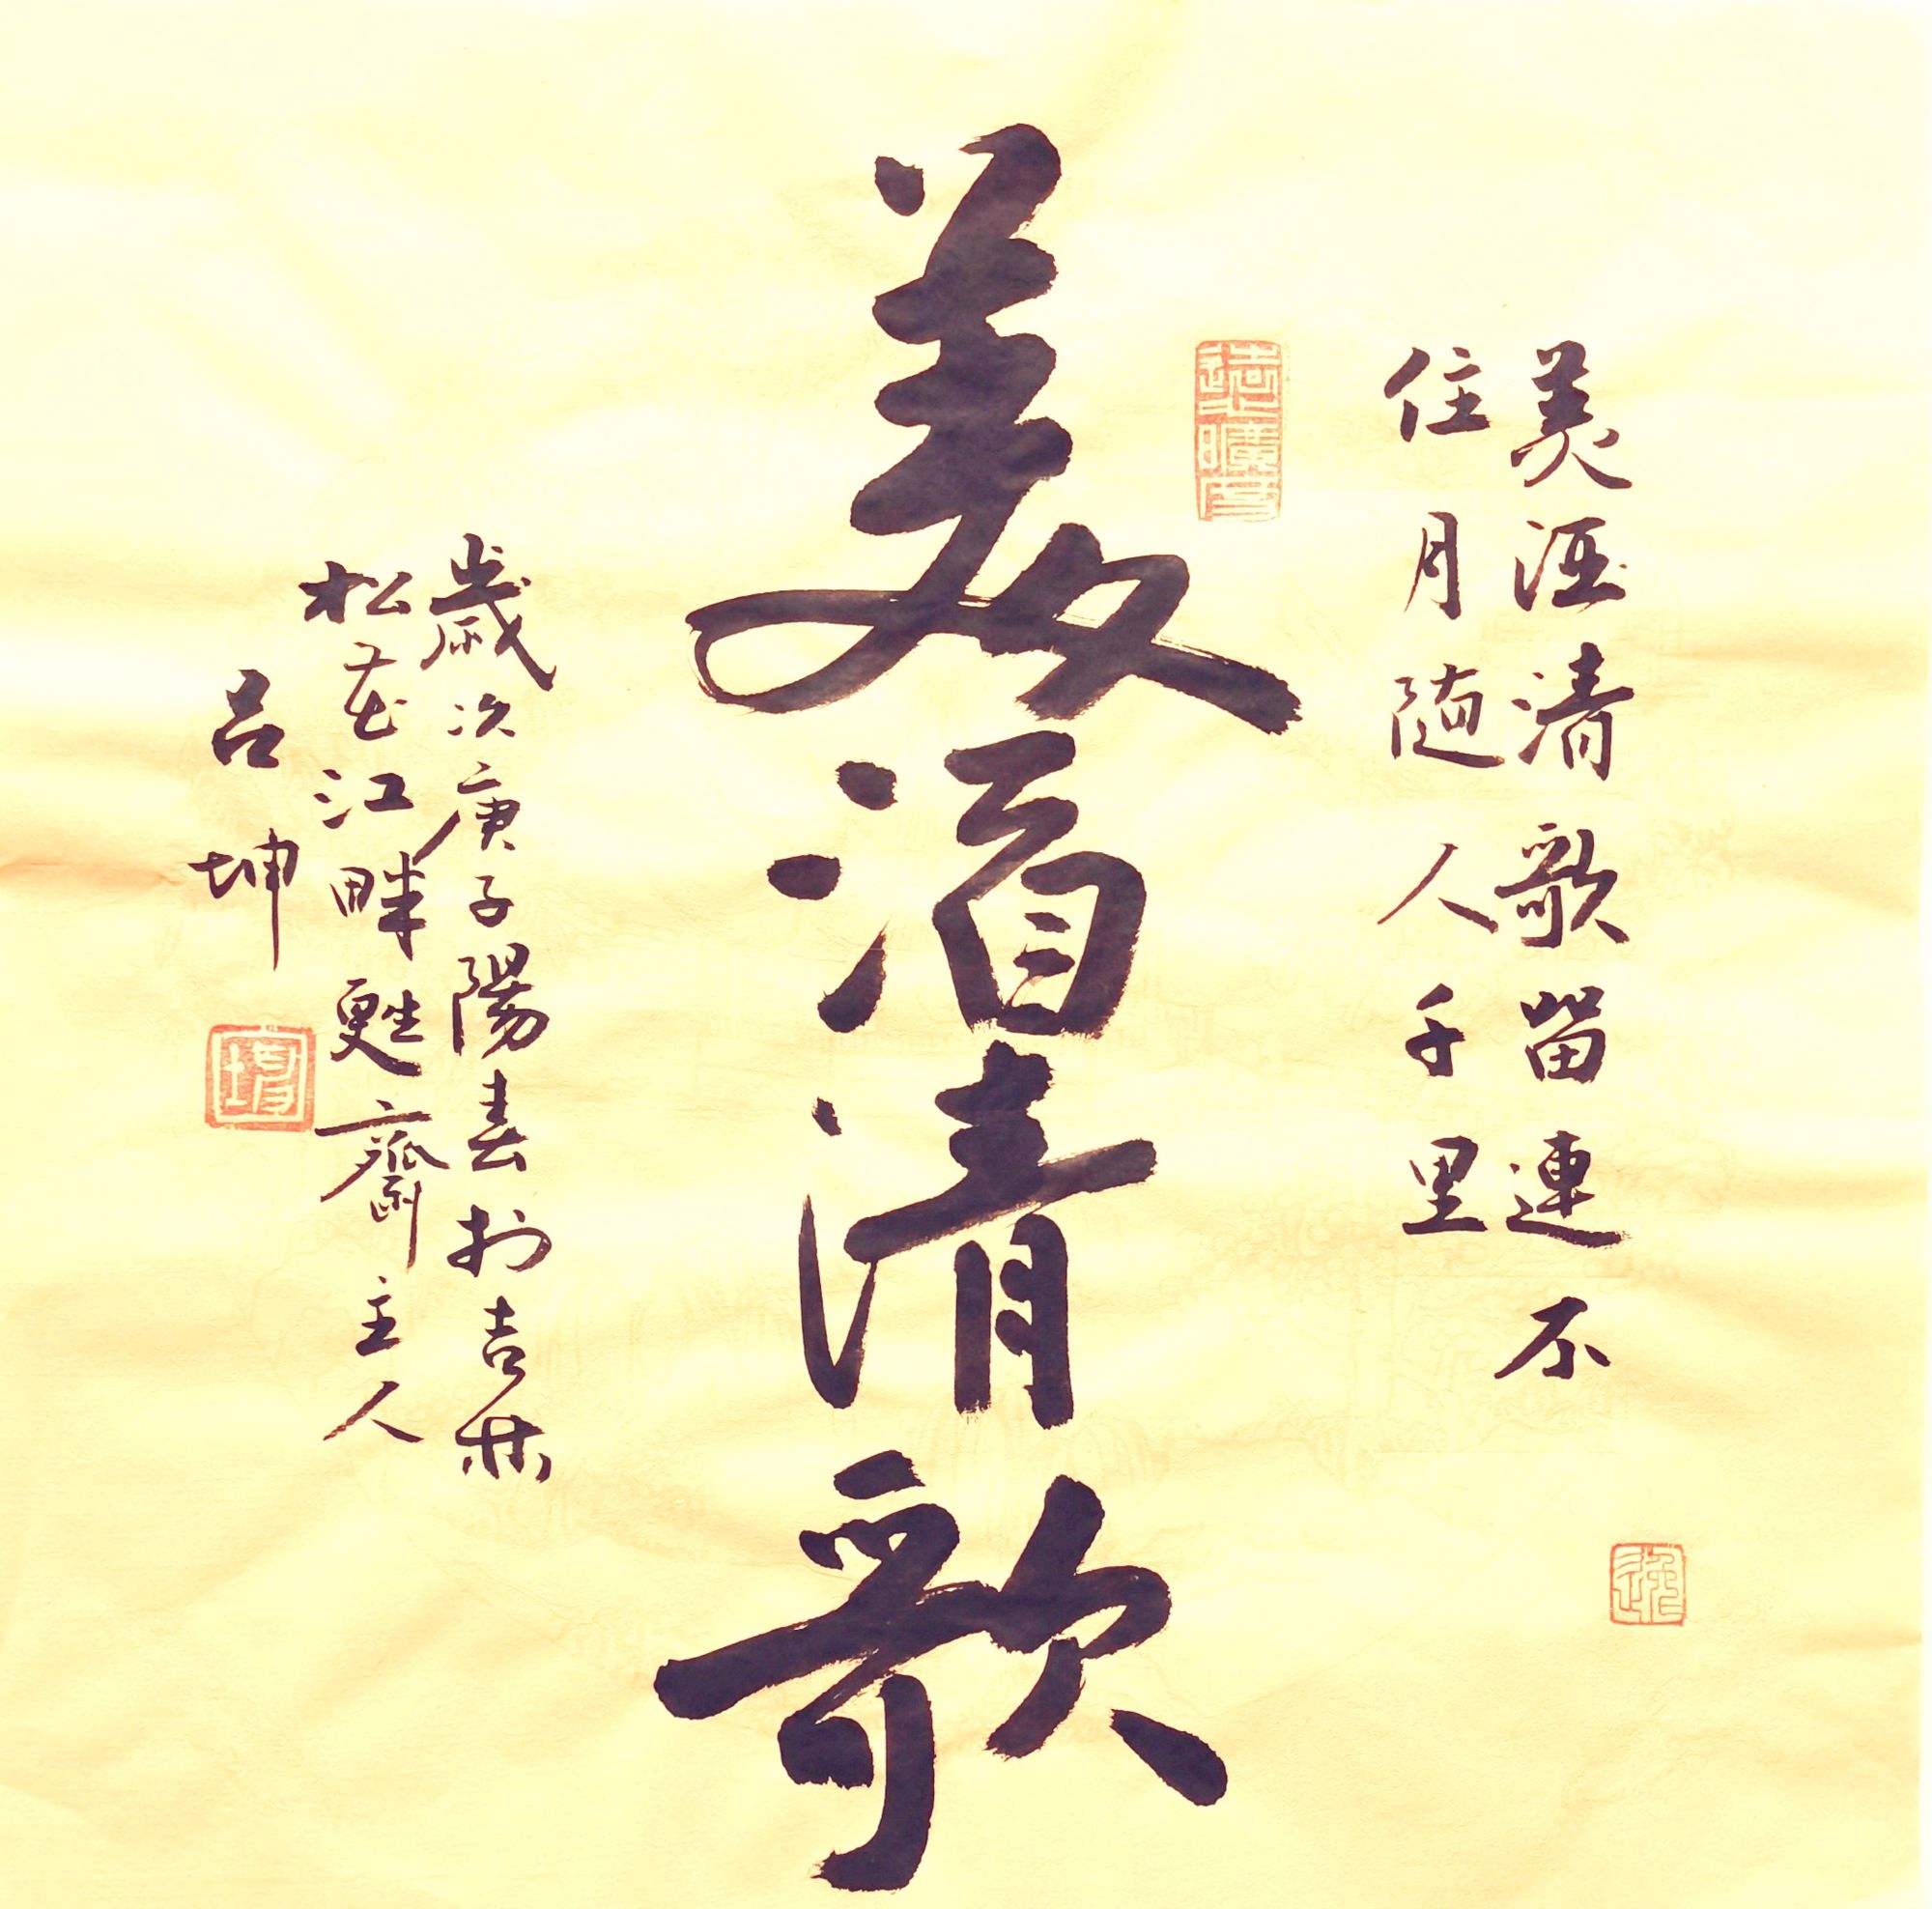 美酒清歌留連不
住月随人千里
美酒清歌
歲次庚子陽春於吉林
松花江畔甦齋主人
呂坤